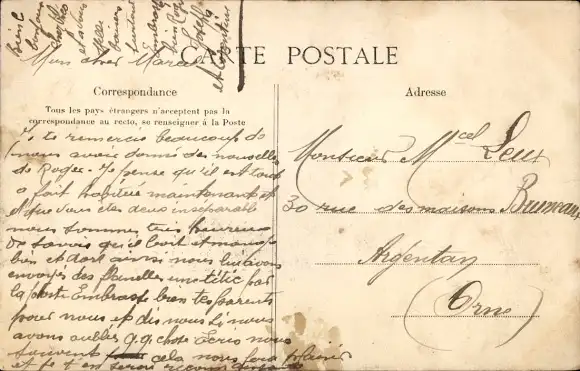 CARTE POSTALE
Correspondance
Tous les pays étrangers n'acceptent pas la
correspondance au recto, se renseigner à la Poste
Mon cher Marcel
Je te remercie beaucoup de
nous avoir donné des nouvelles
de Roger. Je pense qu'il est tout
a fait habitué maintenant et
et que vous êtes deux inséparable
nous sommes très heureux
de savoir qu'il boit et mange
bien et dort ainsi nous lui avons
envoyés des flanelles par
la poste Embrasse bien tes parents
pour nous et dis nous si nous
avons oublié q.q. chose Ecris nous
souvent cela nous fera plaisir
et
Adresse
Monsieur Mcel Leux
30 rue des maisons
Argentan
(Orne)